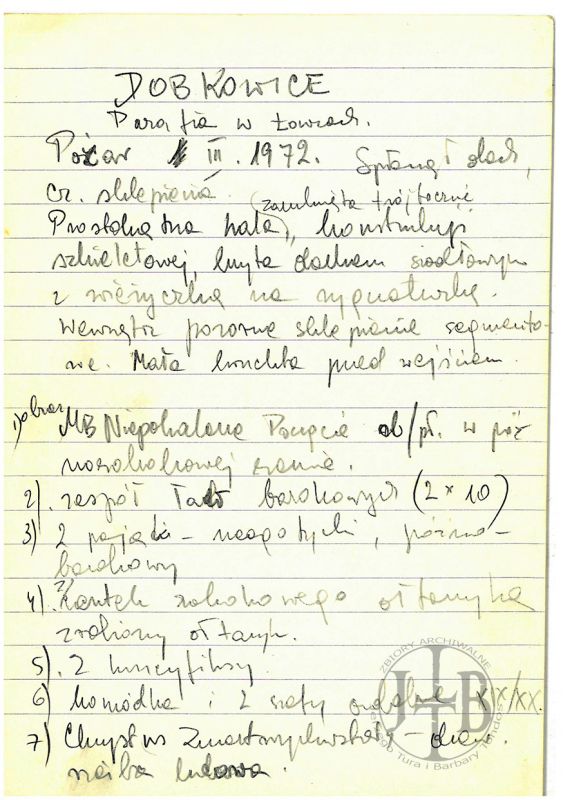 DOBKOWICE
Parafia w Łowcach.
Pożar III. 1972. Spłonął dach,
cz. sklepienia.
(zamknięta trójbocznie)
Prostokątna hala, konstrukcji
szkieletowej, kryta dachem siodłowym
z wieżyczką na sygnaturkę.
Wewnątrz pozorne sklepienie segmento-
we. Mała kruchta przed wejściem.
1) obraz MB Niepokalane Poczęcie ol/pł. w póź
norokokowej ramie.
2). zespół ław barokowych (2 x 10)
3) 2 pająki - neogotycki, późno-
barokowy
4). z rokokowego ołtarzyka
zrobiony ołtarzyk.
5). 2 krucyfiksy
6) komódka i 2 szafy XIX/XX.
7) Chrystus Zmartwychwstały - drewn.
rzeźba ludowa.
ZBIORY ARCHIWALNE
JTB
Jerzego Tura i Barbary Tondos